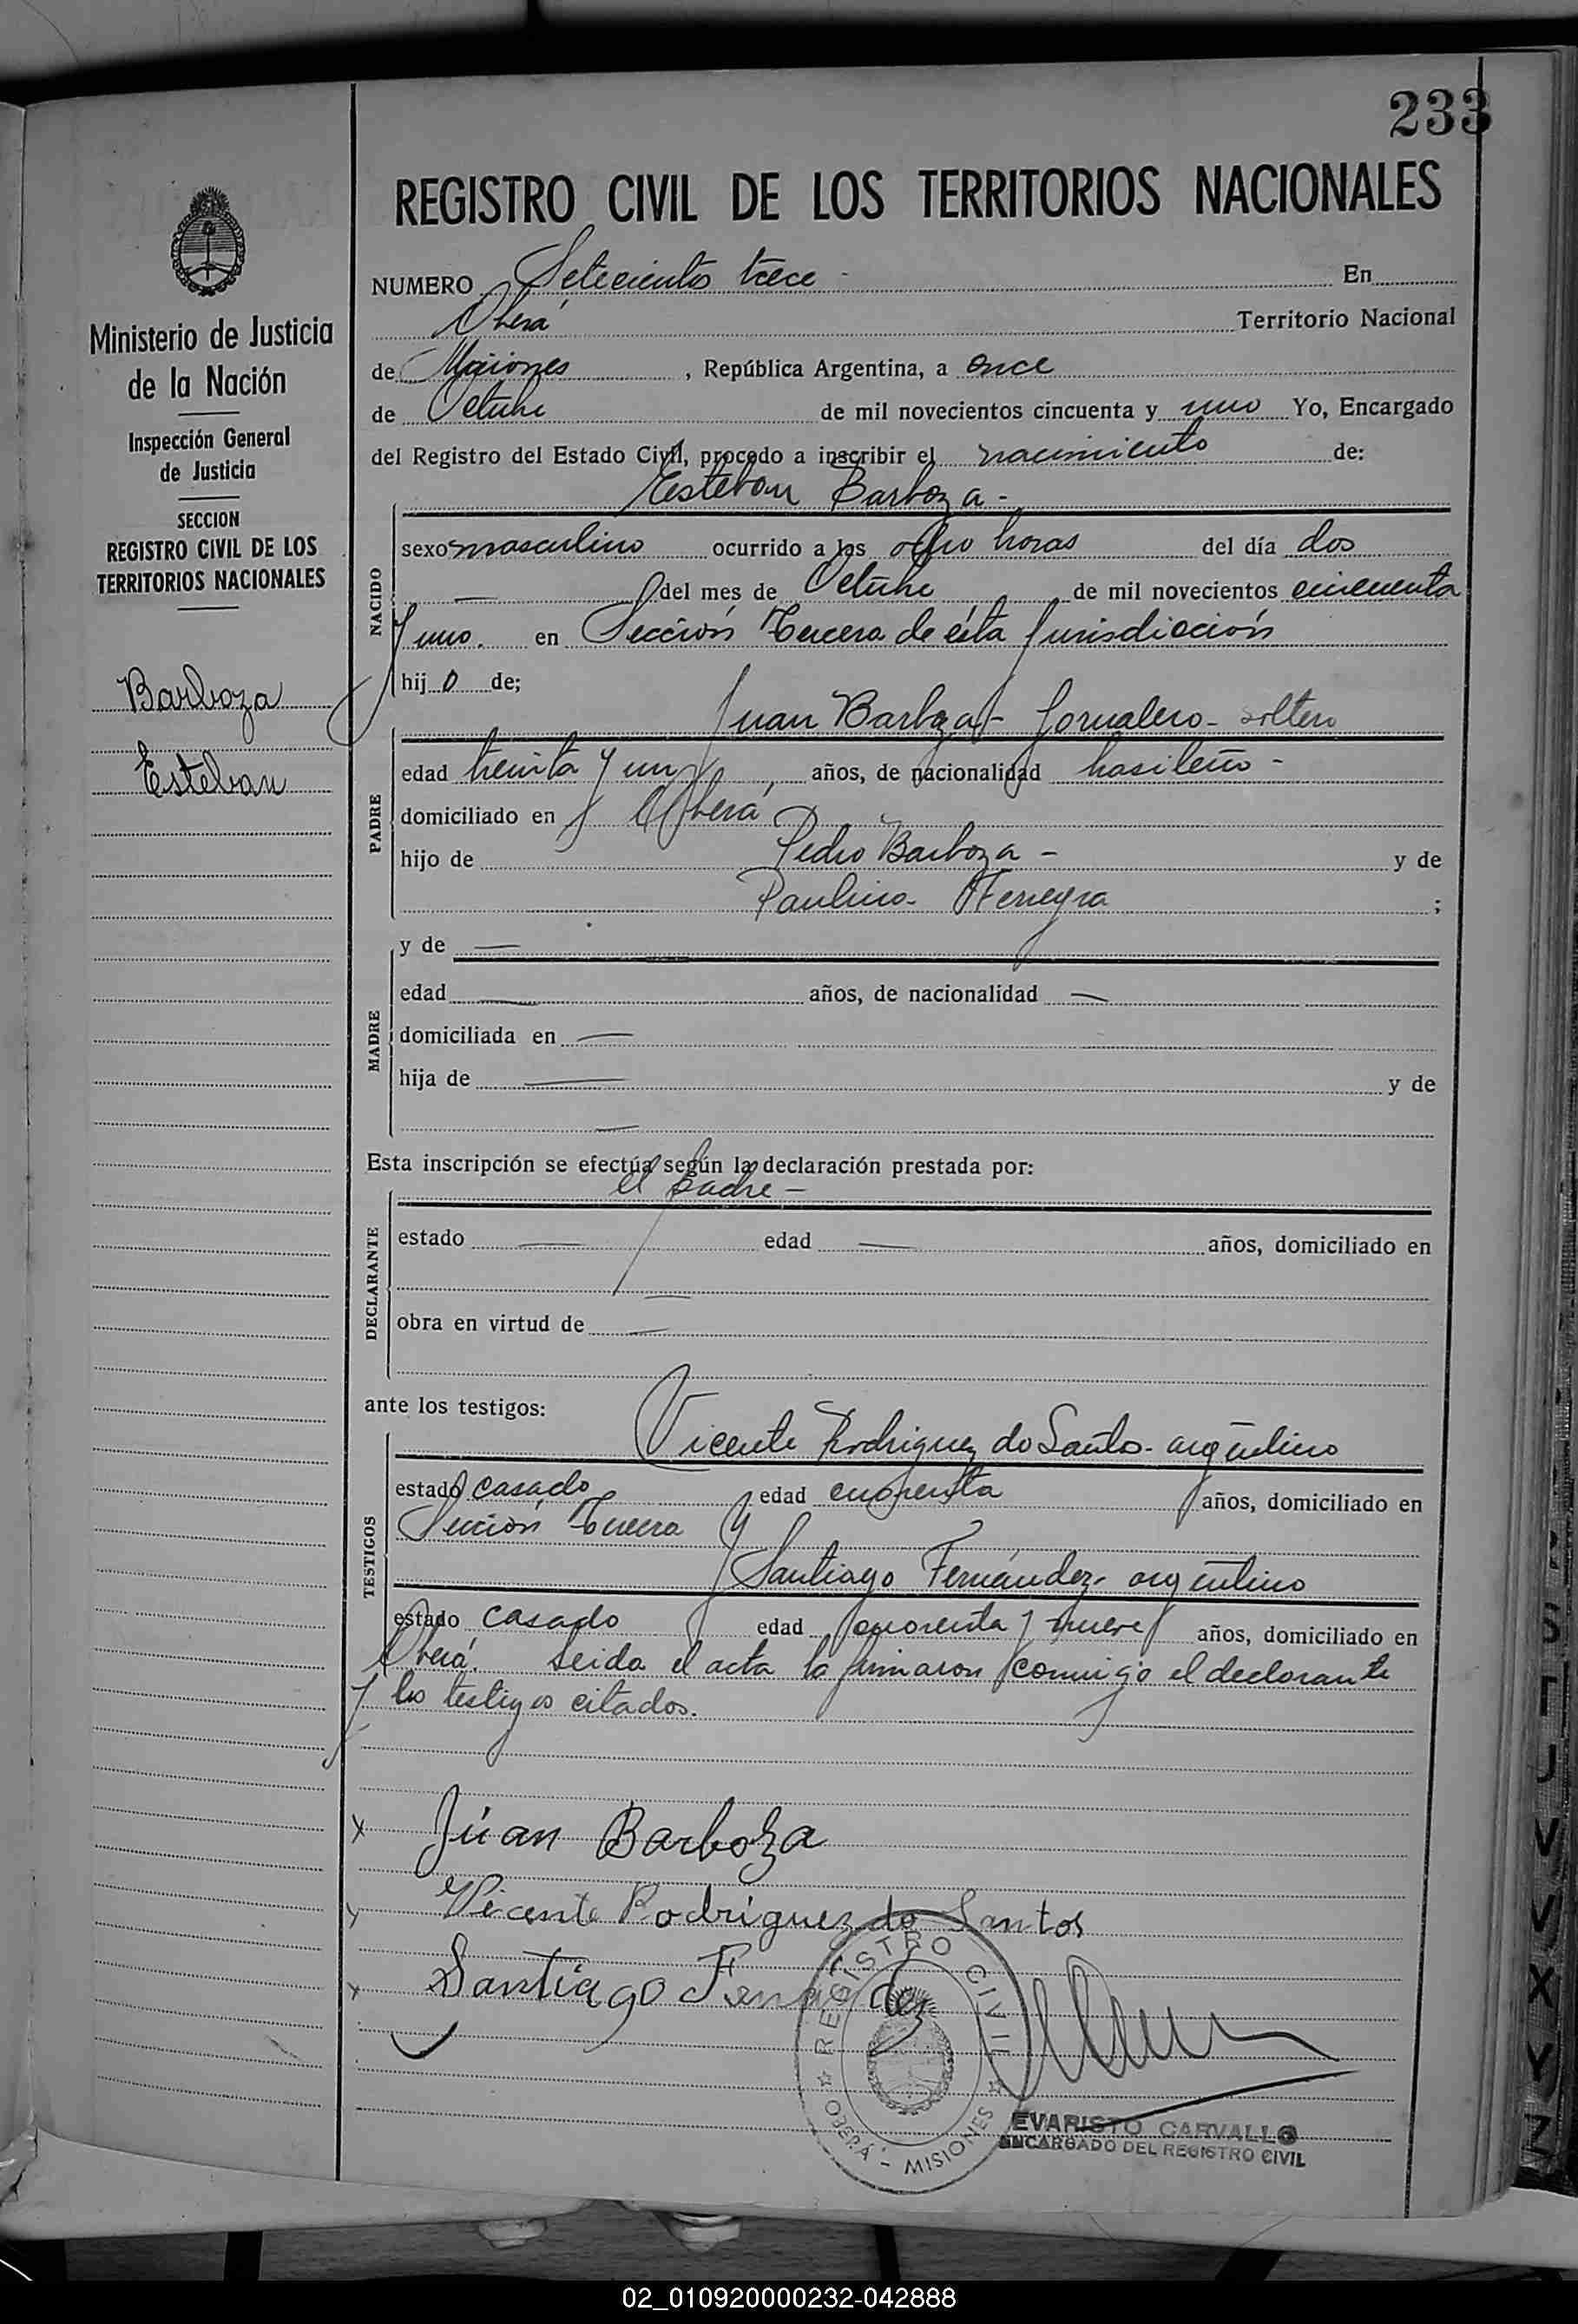 233
REGISTRO CIVIL DE LOS TERRITORIOS NACIONALES
Ministerio de Justicia
de la Nación
Inspección General
de Justicia
SECCION
REGISTRO CIVIL DE LOS
TERRITORIOS NACIONALES
Barboza
Esteban
NUMERO Setecientos trece - En
Oberá Territorio Nacional
de Misiones , República Argentina, a once
de Octubre de mil novecientos cincuenta y uno Yo, Encargado
del Registro del Estado Civil, procedo a inscribir el nacimiento de:
Esteban Barboza -
NACIDO
sexo masculino ocurrido a las ocho horas del día dos
— del mes de Octubre de mil novecientos cincuenta
y uno. en Sección Tercera de ésta Jurisdicción
hij o de;
Juan Barboza - Jornalero - soltero
PADRE
edad treinta y un años, de nacionalidad brasileño -
domiciliado en Oberá
hijo de Pedro Barboza - y de
Paulino Ferreyra ;
MADRE
y de —
edad — años, de nacionalidad —
domiciliada en —
hija de — y de
—
Esta inscripción se efectúa según la declaración prestada por:
el padre -
DECLARANTE
estado — edad — años, domiciliado en
—
obra en virtud de —
ante los testigos:
Vicente Rodriguez do Santos - argentino
TESTIGOS
estado casado edad cuarenta años, domiciliado en
Sección Tercera y
Santiago Fernández - argentino
estado casado edad cuarenta y nueve años, domiciliado en
Oberá. Leida el acta la firmaron conmigo el declarante
y los testigos citados.
x Júan Barboza
x Vicente Rodriguez do Santos
x Santiago Fernandez
REGISTRO CIVIL
OBERÁ - MISIONES
EVARISTO CARVALLO
ENCARGADO DEL REGISTRO CIVIL
S
T
J
V
V
X
Y
Z
02_010920000232-042888